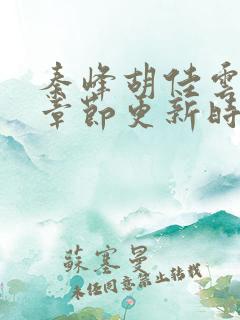 秦峰胡佳雲
章節更新時
蘇塞曼
未經同意禁止轉載